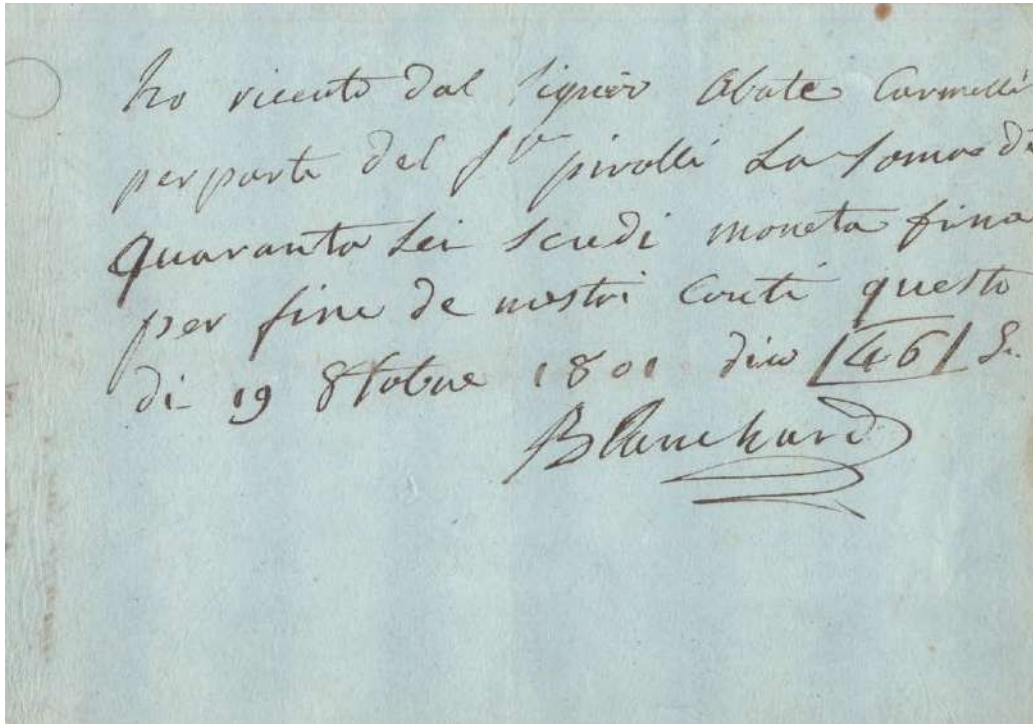 ho riceuto dal Signior Abate Carmelli
per parte del Sr pirolli La Soma di
Quaranta Sei Scudi moneta fina
per fine de nostri Conti questo
di 19 8tobre 1801 dico /46/ S.
Blanchard